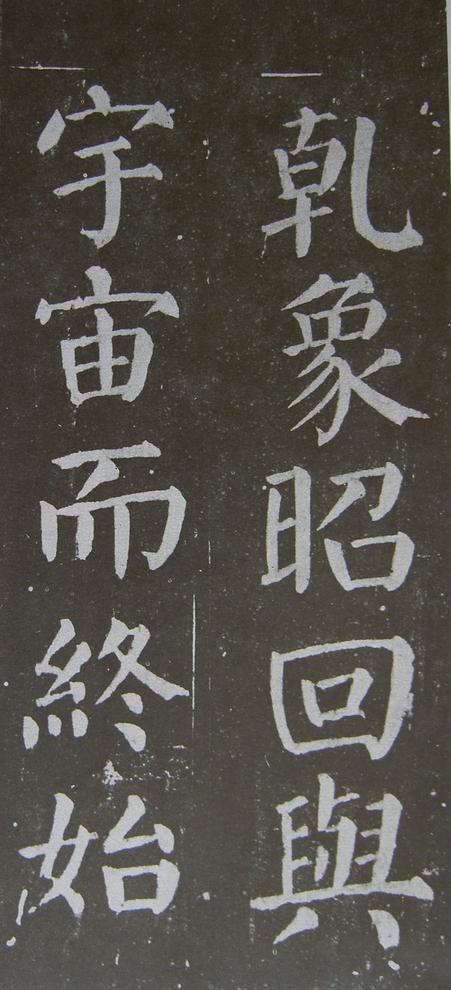 乹象昭回與
宇宙而終始